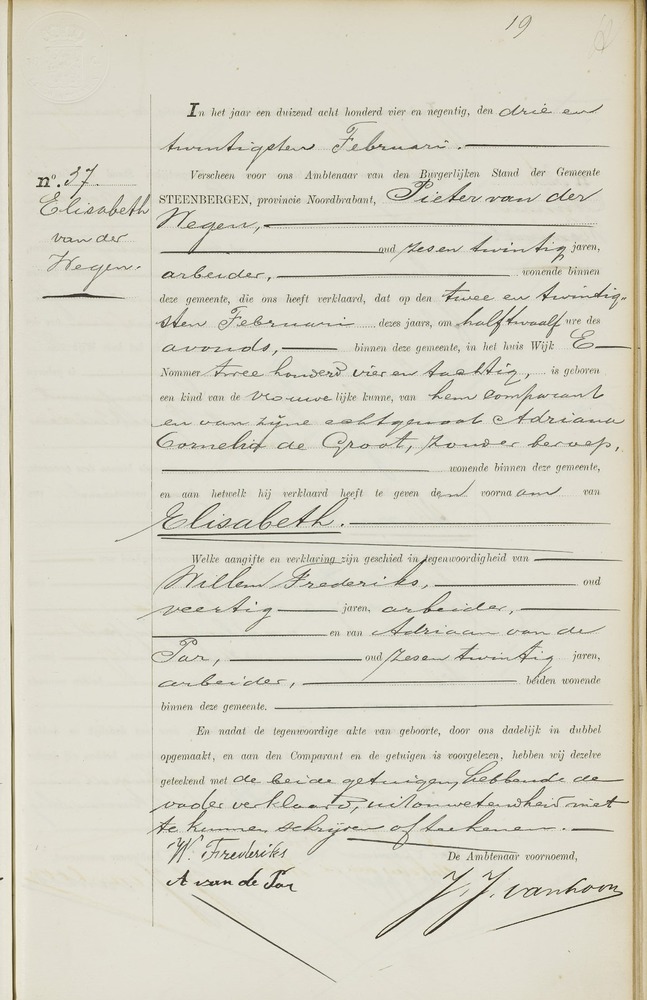 19
In het jaar een duizend acht honderd vier en negentig, den drie en
twintigsten Februari.
Verscheen voor ons Ambtenaar van den Burgerlijken Stand der Gemeente
nº. 37.
STEENBERGEN, provincie Noordbrabant, Pieter van der
Elisabeth
Wegen,
van der
oud zes en twintig jaren,
Wegen.
arbeider, wonende binnen
deze gemeente, die ons heeft verklaard, dat op den twee en twintig-
sten Februari dezes jaars, om half twaalf ure des
avonds, binnen deze gemeente, in het huis Wijk E
Nommer twee honderd vier en tachtig, is geboren
een kind van de vrouwelijke kunne, van hem comparant
en van zijne echtgenoot Adriana
Cornelia de Groot, zonder beroep,
wonende binnen deze gemeente,
en aan hetwelk hij verklaard heeft te geven den voornaam van
Elisabeth.
Welke aangifte en verklaring zijn geschied in tegenwoordigheid van
Willem Frederiks, oud
veertig jaren, arbeider,
en van Adriaan van de
Par, oud zes en twintig jaren,
arbeider, beiden wonende
binnen deze gemeente.
En nadat de tegenwoordige akte van geboorte, door ons dadelijk in dubbel
opgemaakt, en aan den Comparant en de getuigen is voorgelezen, hebben wij dezelve
geteekend met de beide getuigen, hebbende de
vader verklaard, uit onwetendheid niet
te kunnen schrijven of teekenen.
W. Frederiks
De Ambtenaar voornoemd,
A van de Par
J. J. vanhoorn